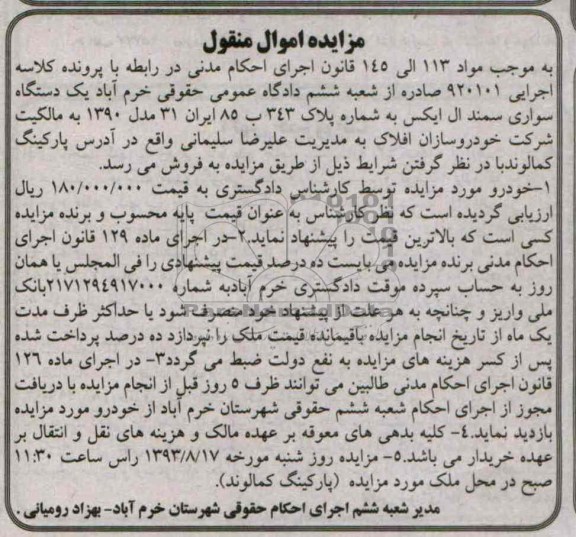 مزایده اموال منقول
به موجب مواد ۱۱۳ الی ۱٤٥ قانون اجرای احکام مدنی در رابطه با پرونده کلاسه
اجرایی ۹۲۰۱۰۱ صادره از شعبه ششم دادگاه عمومی حقوقی خرم آباد یک دستگاه
سواری سمند ال ایکس به شماره پلاک ۳٤۳ ب ۸٥ ایران ۳۱ مدل ۱۳۹۰ به مالکیت
شرکت خودروسازان افلاک به مدیریت علیرضا سلیمانی واقع در آدرس پارکینگ
کمالوندبا در نظر گرفتن شرایط ذیل از طریق مزایده به فروش می رسد.
۱-خودرو مورد مزایده توسط کارشناس دادگستری به قیمت ۱۸۰/۰۰۰/۰۰۰ ریال
ارزیابی گردیده است که نظر کارشناس به عنوان قیمت پایه محسوب و برنده مزایده
کسی است که بالاترین قیمت را پیشنهاد نماید.۲-در اجرای ماده ۱۲۹ قانون اجرای
احکام مدنی برنده مزایده می بایست ده درصد قیمت پیشنهادی را فی المجلس یا همان
روز به حساب سپرده موقت دادگستری خرم آبادبه شماره ۲۱۷۱۲۹٤۹۱۷۰۰۰بانک
ملی واریز و چنانچه به هر علت از پیشنهاد خود منصرف شود یا حداکثر ظرف مدت
یک ماه از تاریخ انجام مزایده باقیمانده قیمت ملک را نپردازد ده درصد پرداخت شده
پس از کسر هزینه های مزایده به نفع دولت ضبط می گردد۳- در اجرای ماده ۱۲٦
قانون اجرای احکام مدنی طالبین می توانند ظرف ٥ روز قبل از انجام مزایده با دریافت
مجوز از اجرای احکام شعبه ششم حقوقی شهرستان خرم آباد از خودرو مورد مزایده
بازدید نماید.٤- کلیه بدهی های معوقه بر عهده مالک و هزینه های نقل و انتقال بر
عهده خریدار می باشد.٥- مزایده روز شنبه مورخه ۱۳۹۳/۸/۱۷ راس ساعت ۱۱:۳۰
صبح در محل ملک مورد مزایده (پارکینگ کمالوند).
مدیر شعبه ششم اجرای احکام حقوقی شهرستان خرم آباد- بهزاد رومیانی .